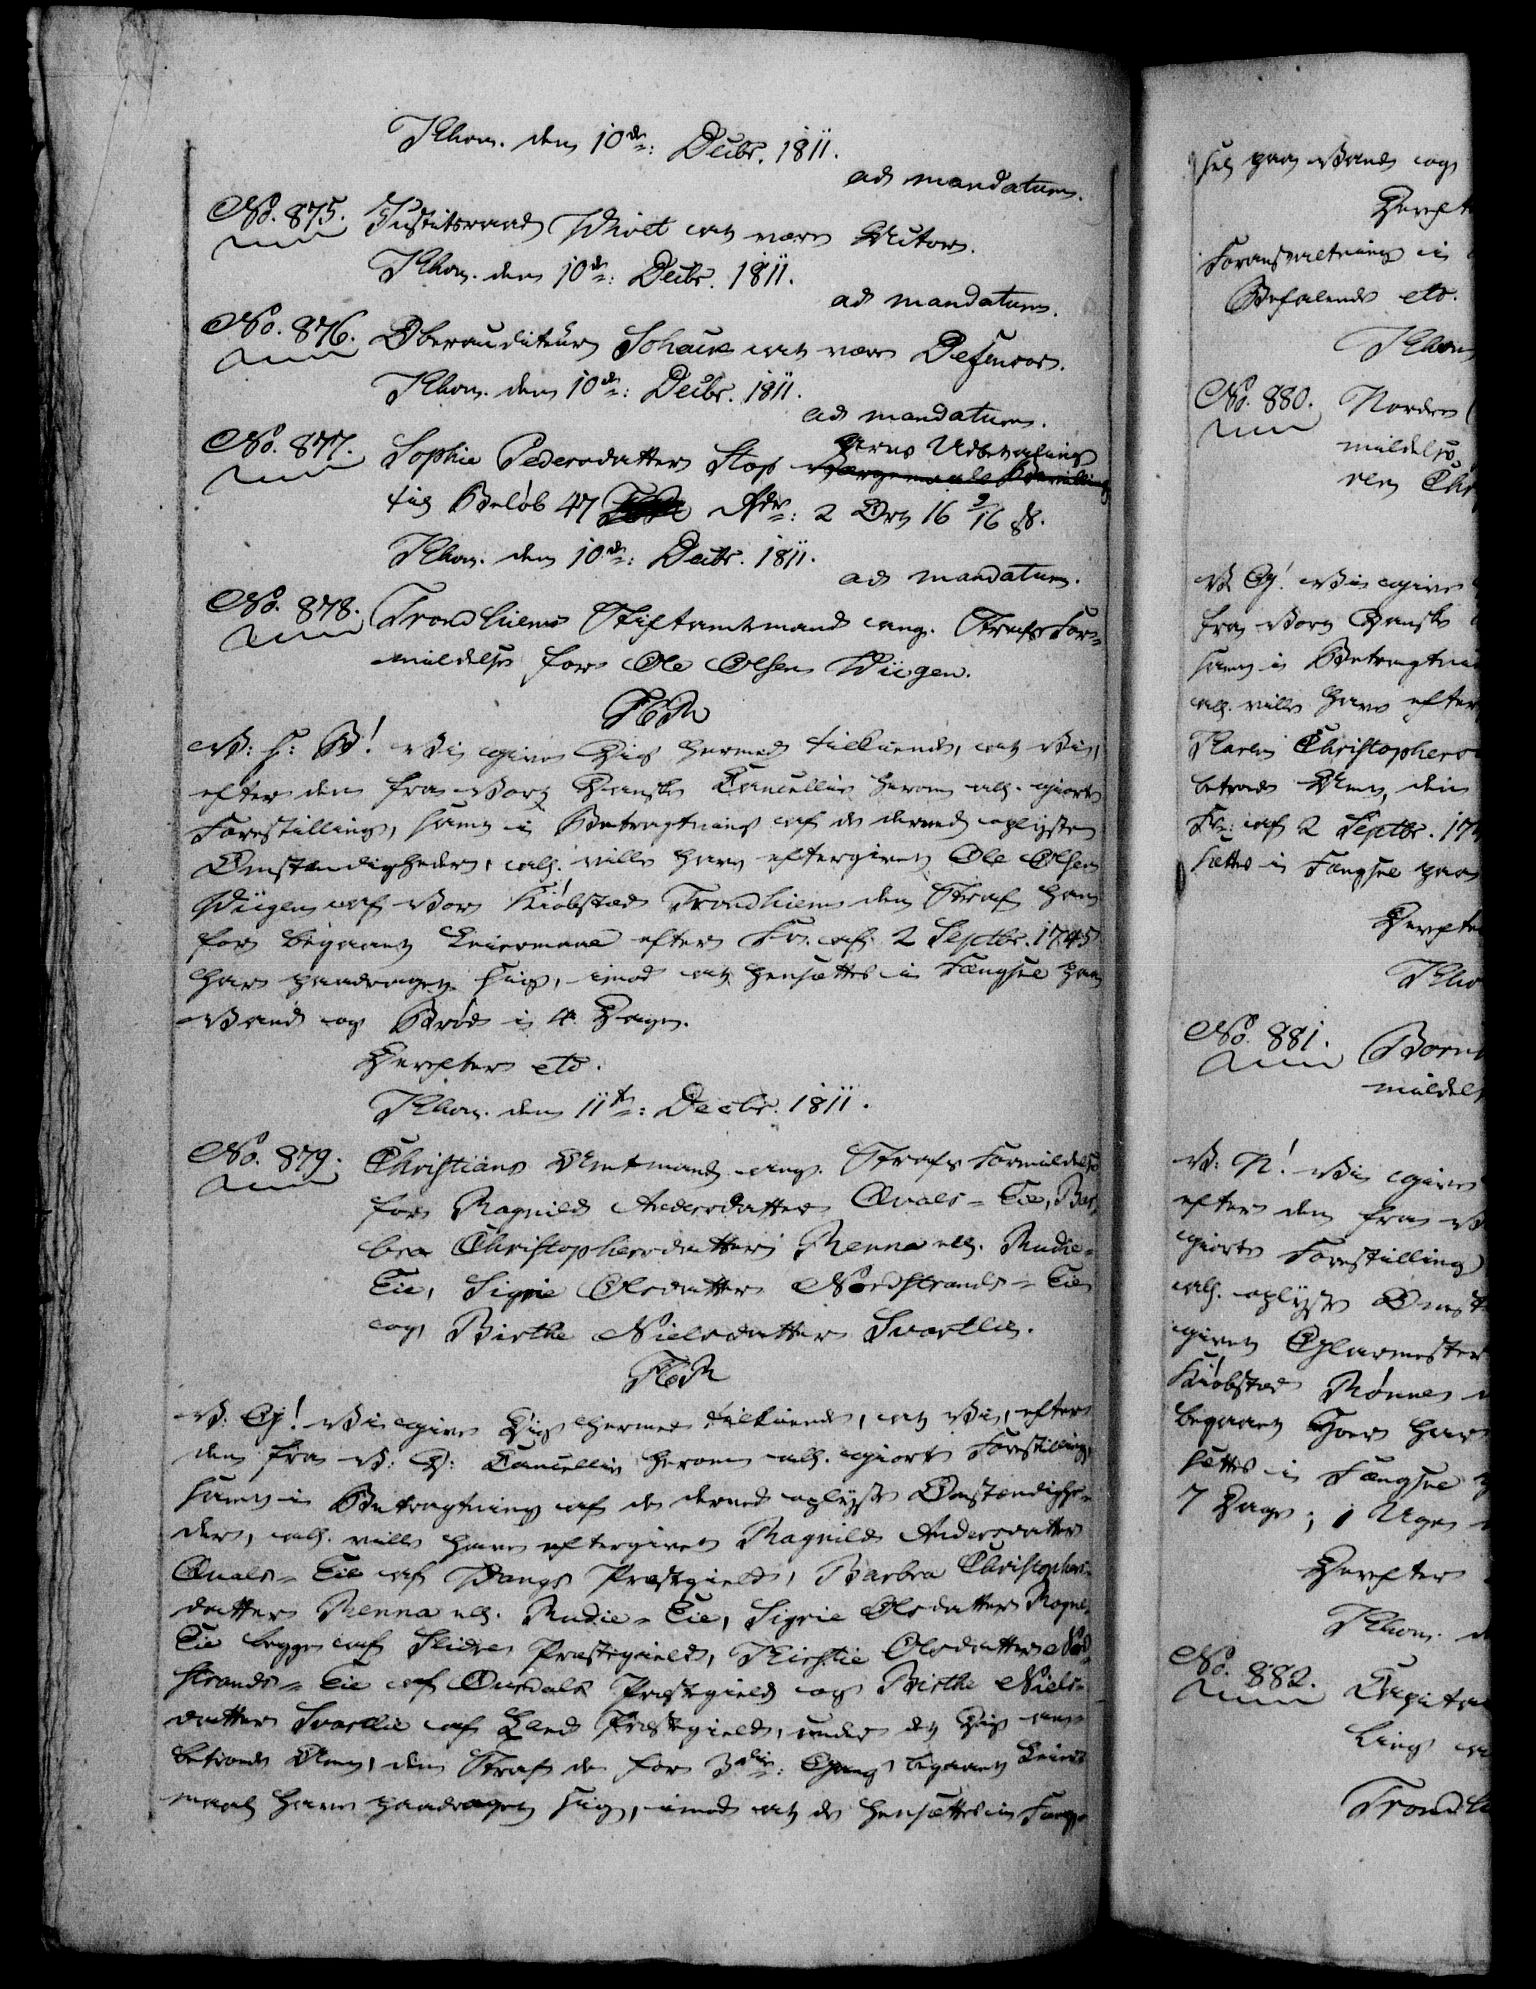 Khavn. den 10de: Decbr. 1811.
ad mandatum.
No. 875. Justitsraad Wivet at være Actor.
Khavn. den 10de: Decbr. 1811.
ad mandatum.
No. 876. Oberauditeur Schouw at være Defensor.
Khavn. den 10de: Decbr. 1811.
ad mandatum.
No. 877. Sophie Pedersdatter Stop Udbetaling
til Beløb 47 Rdr: 2 Ort 16 3/16 ß.
Khavn. den 10de: Decbr. 1811.
ad mandatum.
No. 878. Trondhiems Stiftamtmand ang. Straffs For-
mildelse for Ole Olsen Wiigen.
FR
V: H: B! Vi give Dig hermed tilkiende, at Vi,
efter den fra Vort Danske Cancellie herom all. giorte
Forestilling, samt i Betragtning af de derved oplyste
Omstændigheder, all. ville have eftergivet Ole Olsen
Wiigen af Vor Kiøbstad Trondhiem den Straf han
for begaaet Leiermaal efter Fr. af 2 Septbr. 1745
har paadraget sig, imod at hensættes i Fængsel paa
Vand og Brød i 4 Dage.
Derefter etc.
Khavn. den 11te: Decbr. 1811.
No. 879. Christians Amtmand ang. Straffs Formildelse
for Ragnild Andersdatter Qvals-Eie, Bar-
bra Christophersdatter Renna ell. Rudie-
Eie, Sigrie Olsdatter Nordstrands-Eie
og Birthe Nielsdatter Svartlie.
FR
V: G! Vi give Dig hermed tilkiende, at Vi, efter
den fra V: D: Cancellie herom all. giorte Forestilling,
samt i Betragtning af de derved oplyste Omstændighe-
der, all. ville have eftergivet Ragnild Andersdatter
Qvals-Eie af Vangs Præstegield, Barbra Christophers-
datter Renna ell. Rudie-Eie, Sigrie Olsdatter Rogne-
Eie begge af Slidre Præstegield, Kirstie Olsdatter Nord-
strands-Eie af Ourdals Præstegield og Birthe Niels-
datter Svartlie af Land Præstegield, under det Dig an-
betroede Amt, den Straf de for 3die: Gang begaaet Leier-
maal have paadraget sig, imod at de hensættes i Fæng-
sel paa Vand og
Derefter
Foranstaltning i
Befalende etc.
Khavn
No. 880. Norder
mildelse
ren Chr
V. G! Vi give
fra Vort Danske
samt i Betragtning
all. ville have efter
Karen Christophers
betroede Amt, den
Fr: af 2 Septbr. 17
sættes i Fængsel paa
Derefter
Kha
No. 881. Born
mildels
V: N! Vi give
efter den fra V
giorte Forestilling
all. oplyste Omst
givet Glarmester
Kiøbstad Rønne
begaaet Hoer har
sættes i Fængsel
7 Dage; 1 Uge
Derefter
Khavn. d
No. 882. Capitai
ling
Trondh